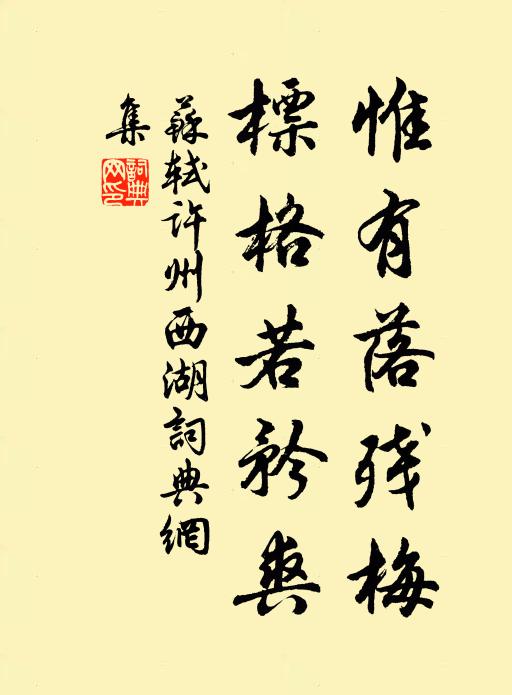 惟有落殘梅
標格若矜爽
蘇軾許州西湖詞典網
集
詞典網印